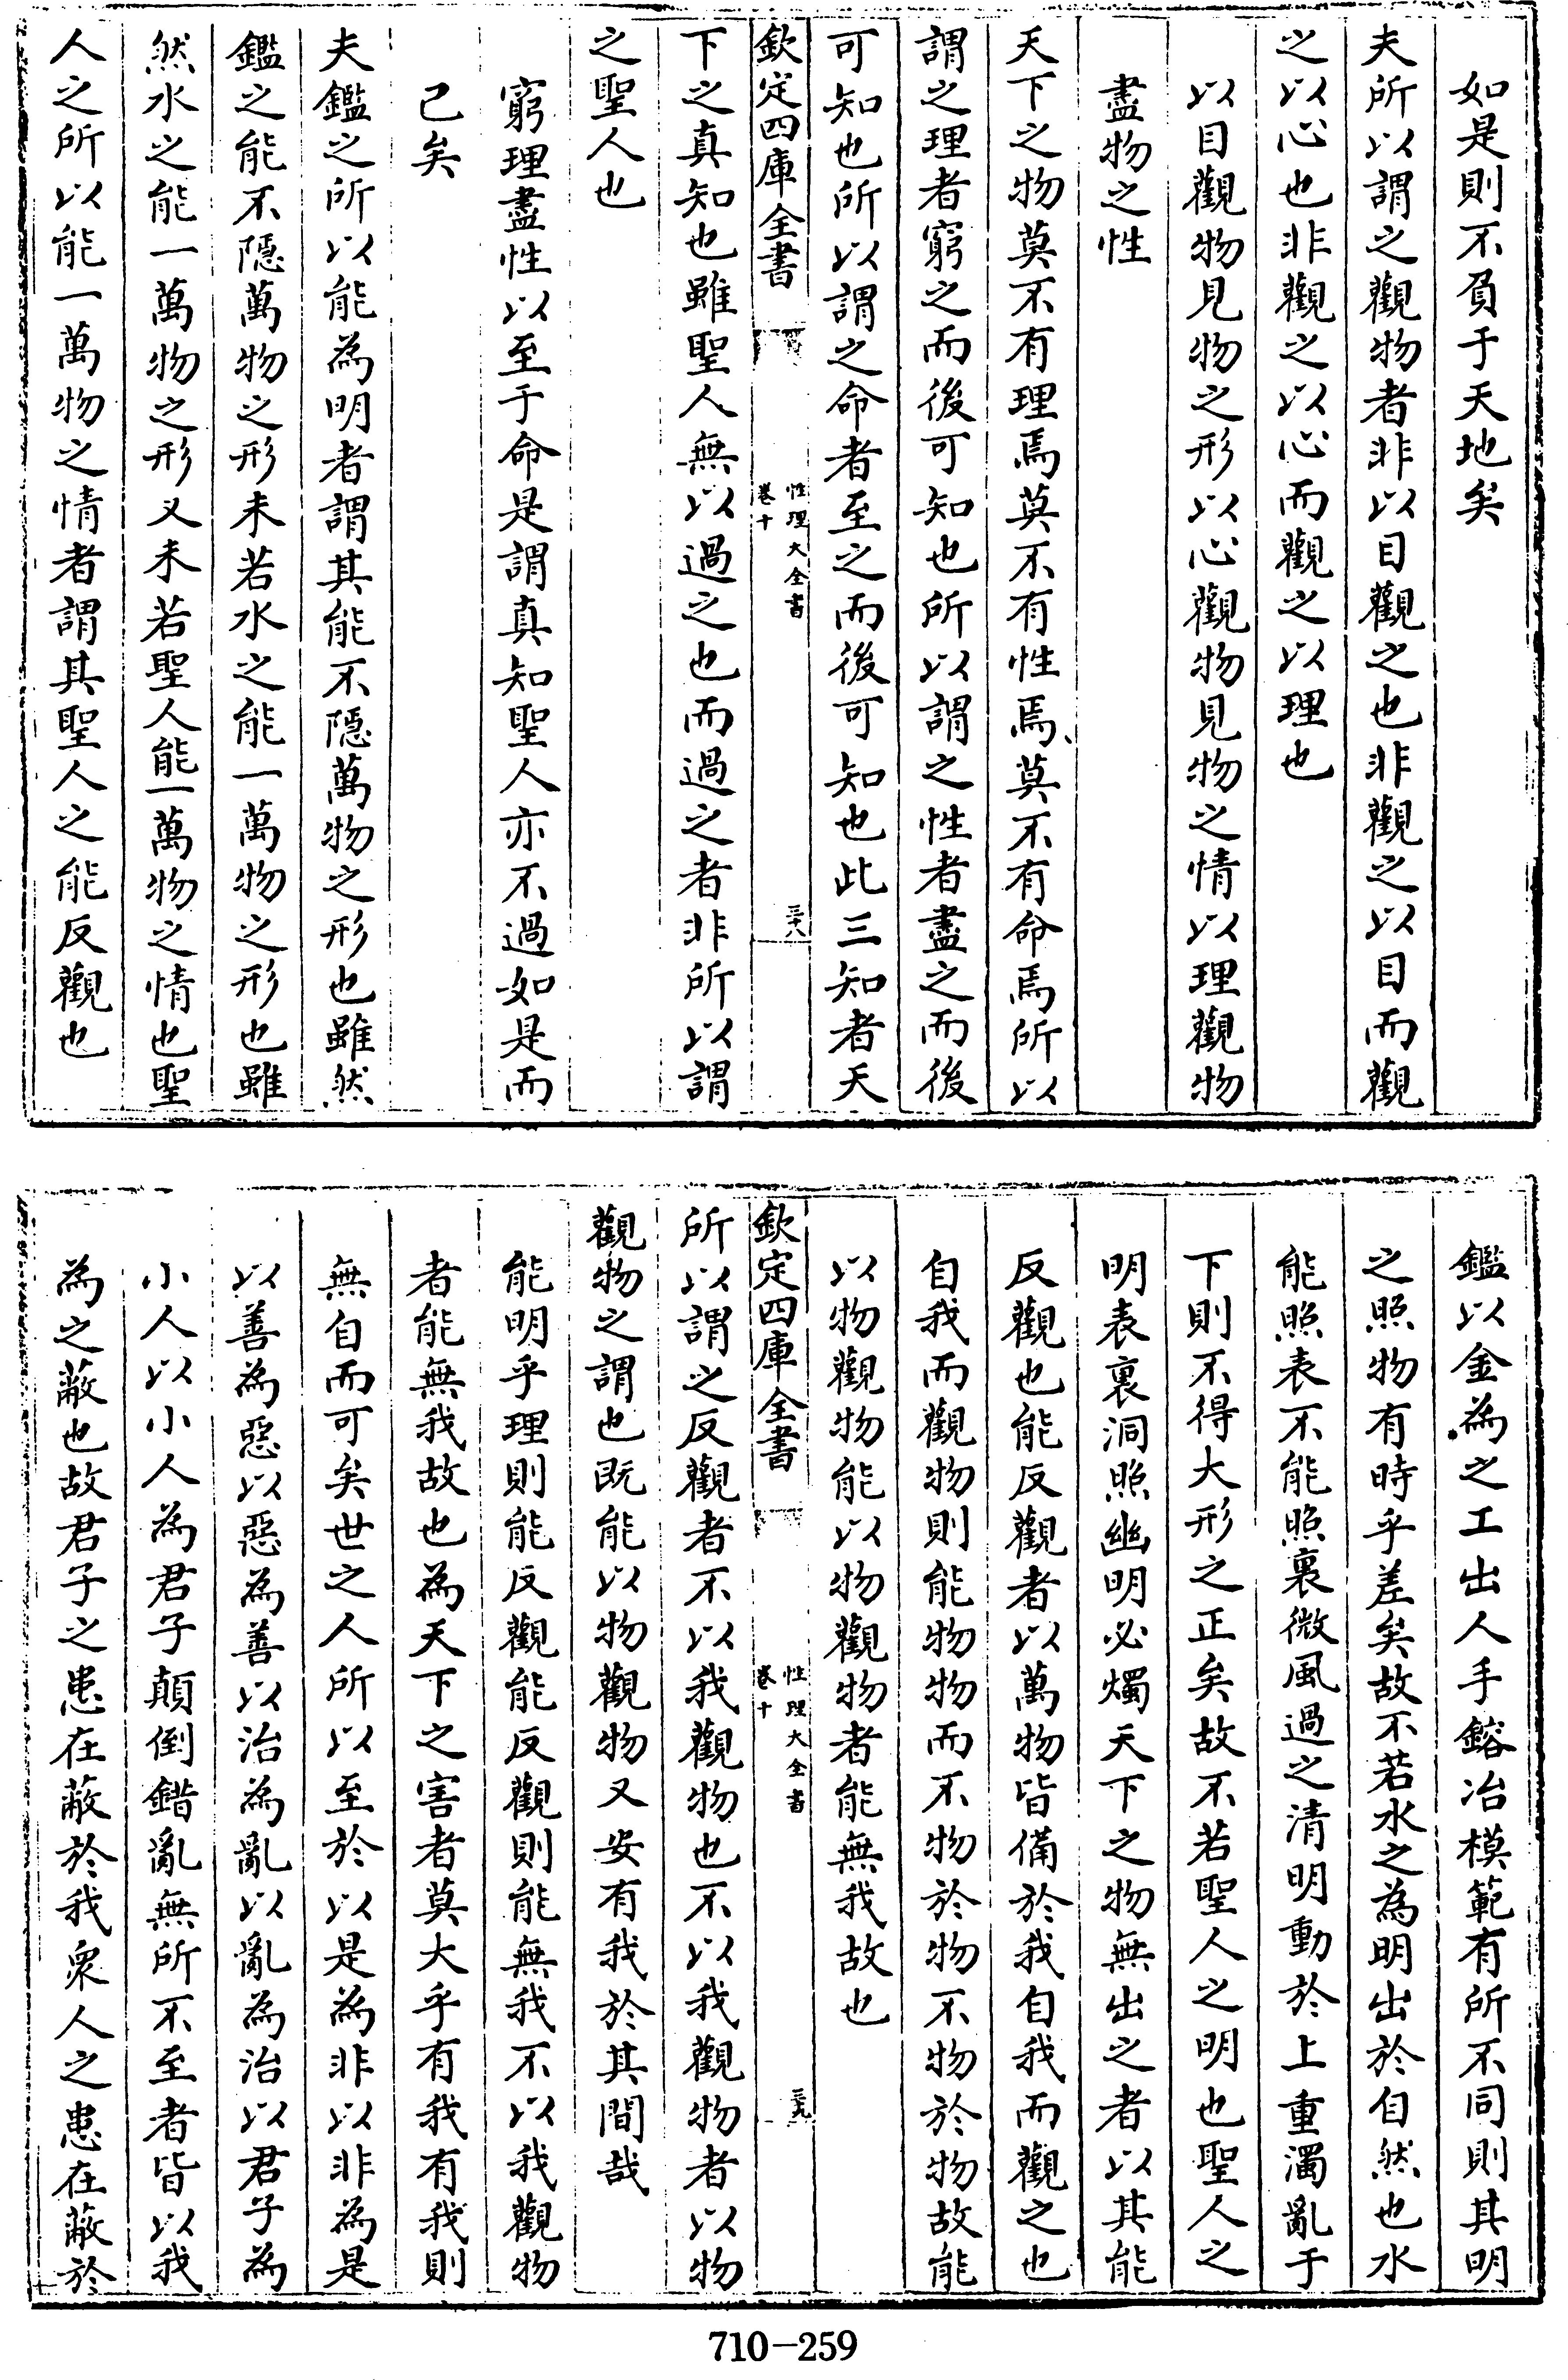 如是則不負于天地矣
夫所以謂之觀物者非以目觀之也非觀之以目而觀
之以心也非觀之以心而觀之以理也
以目觀物見物之形以心觀物見物之情以理觀物
盡物之性
天下之物莫不有理焉莫不有性焉莫不有命焉所以
謂之理者窮之而後可知也所以謂之性者盡之而後
可知也所以謂之命者至之而後可知也此三知者天
欽定四庫全書
性理大全書
卷十
三十八
下之真知也雖聖人無以過之也而過之者非所以謂
之聖人也
窮理盡性以至于命是謂真知聖人亦不過如是而
已矣
夫鑑之所以能為明者謂其能不隱萬物之形也雖然
鑑之能不隱萬物之形未若水之能一萬物之形也雖
然水之能一萬物之形又未若聖人能一萬物之情也聖
人之所以能一萬物之情者謂其聖人之能反觀也
鑑以金為之工出人手鎔冶模範有所不同則其明
之照物有時乎差矣故不若水之為明出於自然也水
能照表不能照裏微風過之清明動於上重濁亂于
下則不得大形之正矣故不若聖人之明也聖人之
明表裏洞照幽明必燭天下之物無出之者以其能
反觀也能反觀者以萬物皆備於我自我而觀之也
自我而觀物則能物物而不物於物不物於物故能
以物觀物能以物觀物者能無我故也
欽定四庫全書
性理大全書
卷十
三十九
所以謂之反觀者不以我觀物也不以我觀物者以物
觀物之謂也既能以物觀物又安有我於其間哉
能明乎理則能反觀能反觀則能無我不以我觀物
者能無我故也為天下之害者莫大乎有我有我則
無自而可矣世之人所以至於以是為非以非為是
以善為惡以惡為善以治為亂以亂為治以君子為
小人以小人為君子顛倒錯亂無所不至者皆以我
為之蔽也故君子之患在蔽於我衆人之患在蔽於
710-259